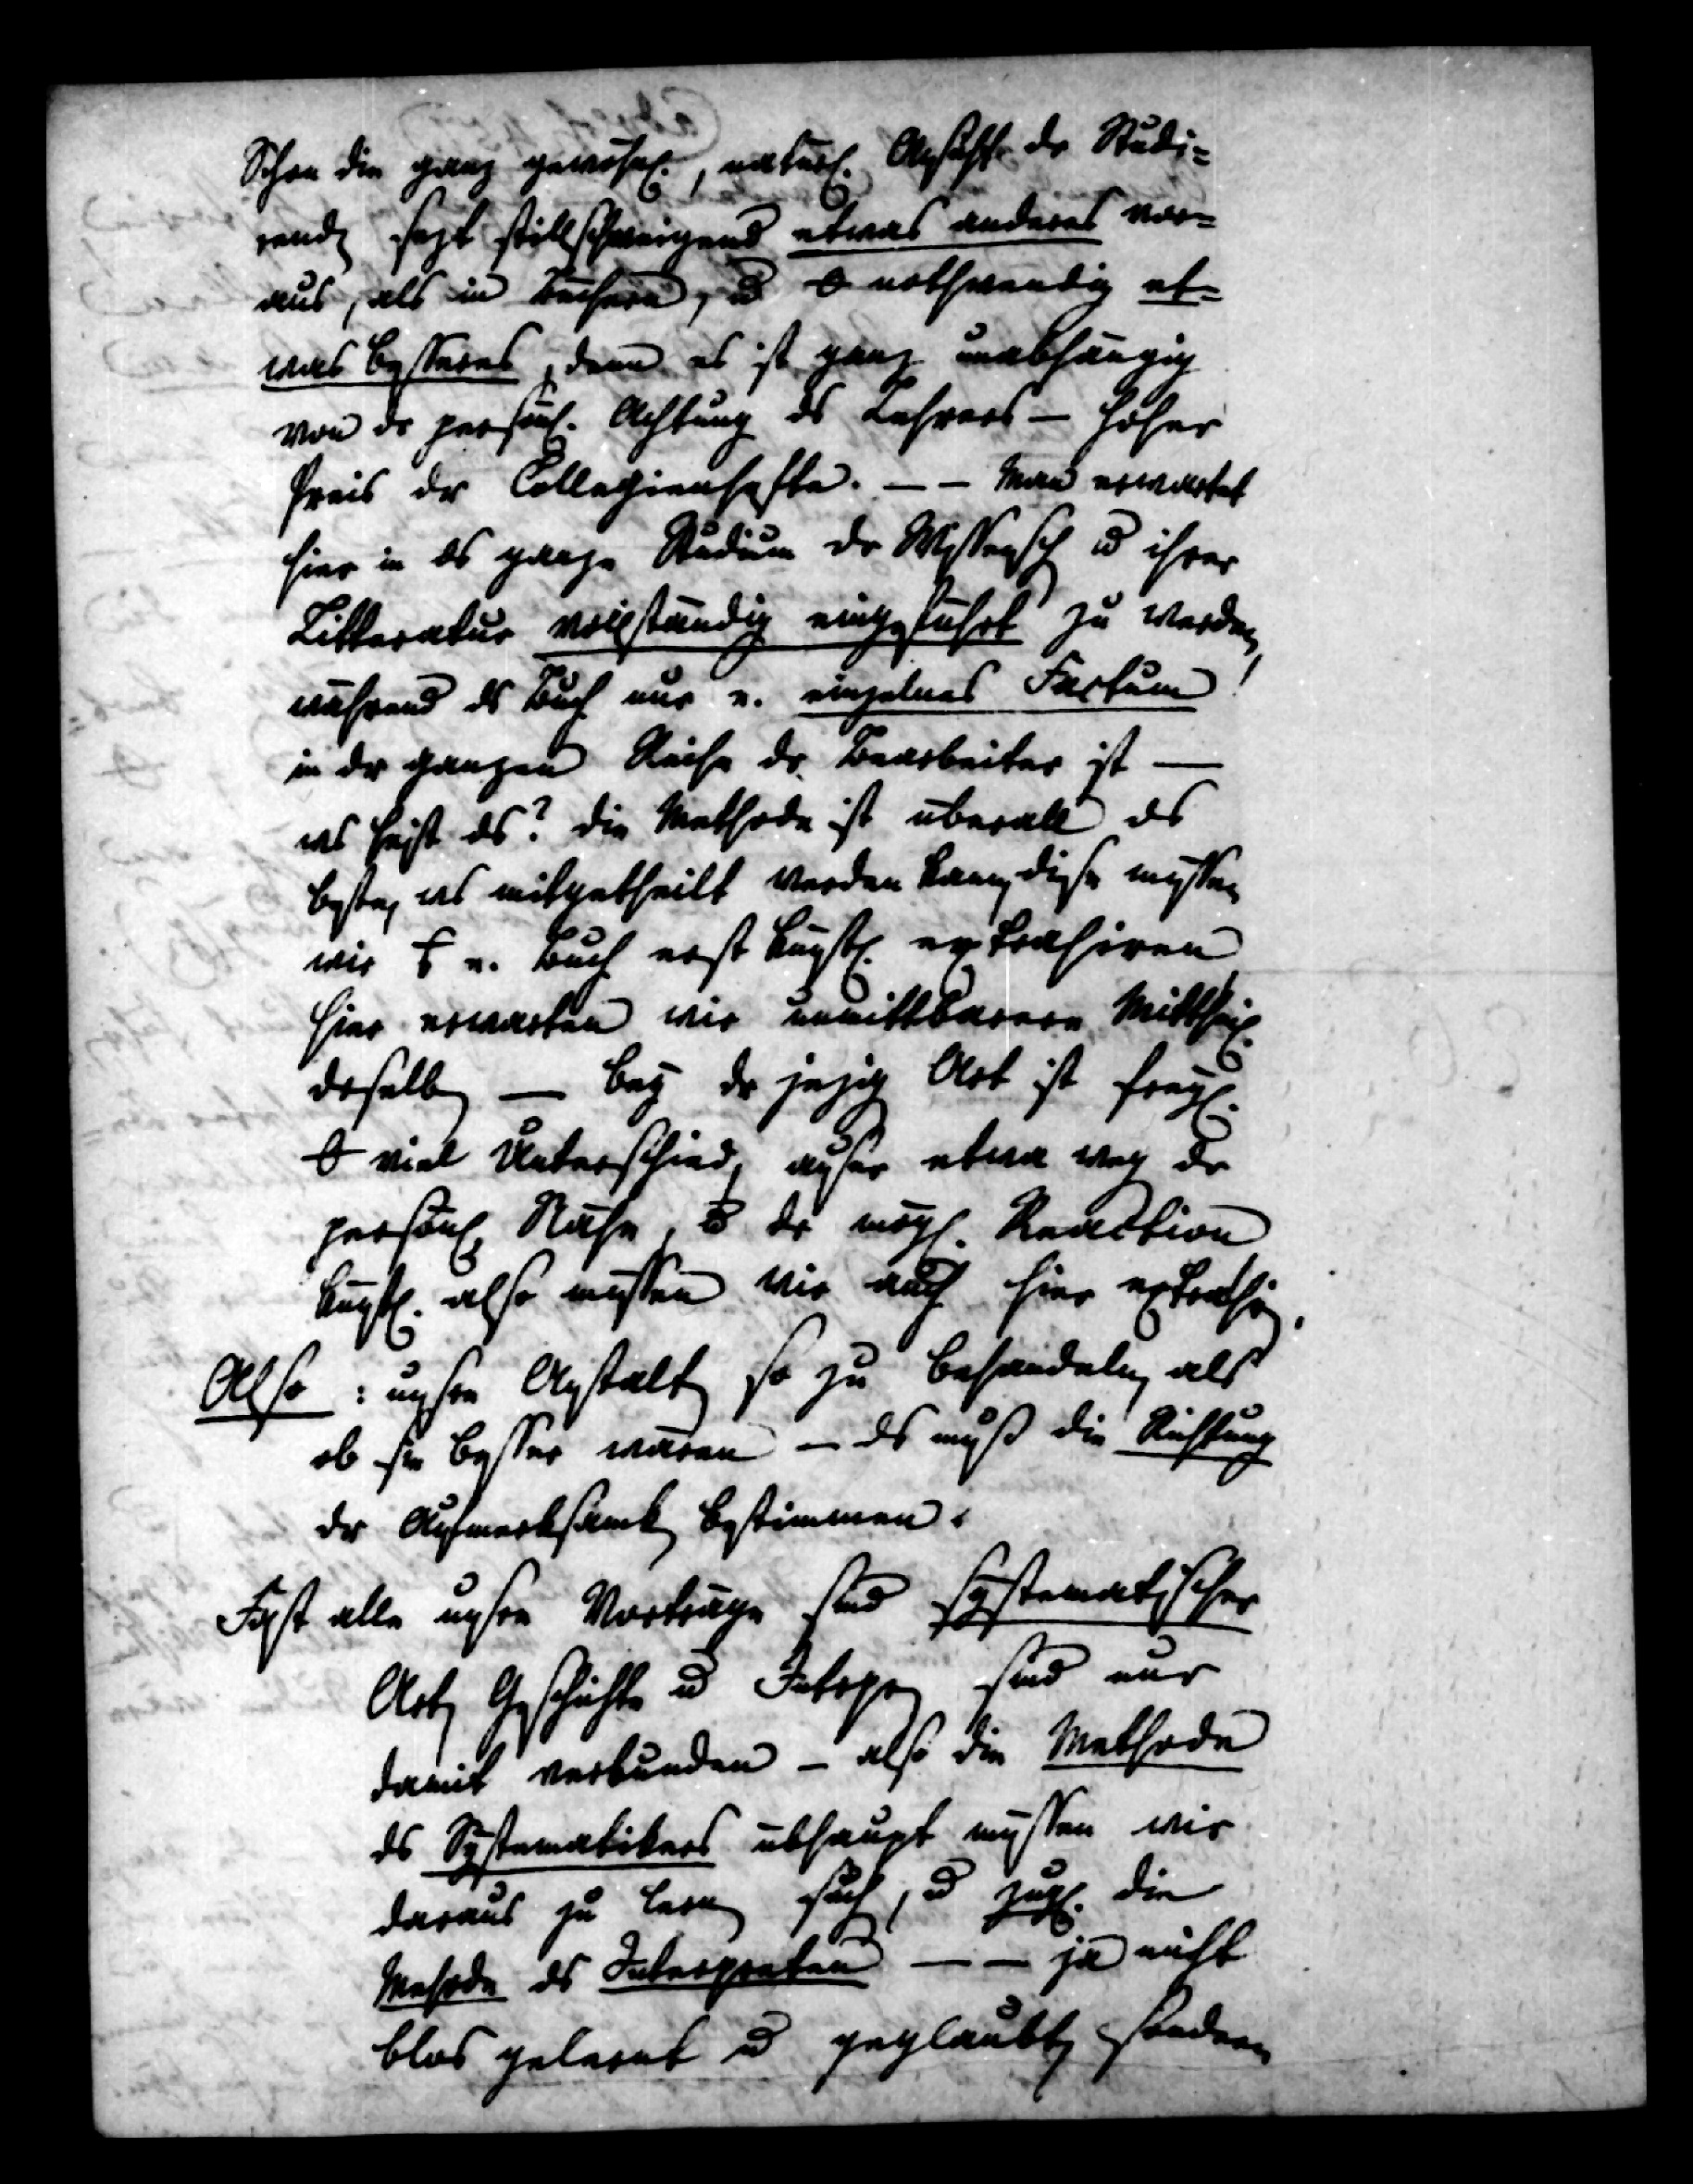 Schon die ganz gewöhnl., natürl. Ansicht der Studi=
renden sezt stillschweigend etwas anderes vor=
aus, als in Büchern, u nothwendig et=
was besseres, denn es ist ganz unabhängig
von dr persönl. Achtung ds Lehrers — hoher
Preis dr Collegienhefte. — — Man erwartet
hier in ds ganze Studium dr Wissensch u ihrer
Litteratur vollständig eingeführt zu werden,
während ds Buch nur e. einzelnes Factum
in dr ganzen Reihe dr Bearbeiter ist —
ws heist ds? die Methode ist überall ds
beste, ws mitgetheilt werden kann, diese müssen
wir e. Buch erst künstl. extrahiren
hier erwarten wir unmittbarere Mittheil.
drselben — bey dr jezig Art ist freyl.
viel Unterschied, ausser etwa weg dr
persönl. Nähe, u dr mögl. Reaction
künstl. also müssen wir auch hier extrahir.
Also : unsre Anstalten so zu behandeln, als
ob sie besser wären — ds muß die Richtung
dr Aufmerksamk bestimmen.
Fast alle unsre Vorträge sind systematischer
Art, Geschichte u Interpr sind nur
damit verbunden — also die Methode
ds Systematikers übhaupt müssen wir
daraus zu lern such, u zugl. die
Methode ds Interpreten — — ja nicht
blos gelernt u geglaubt, sondern